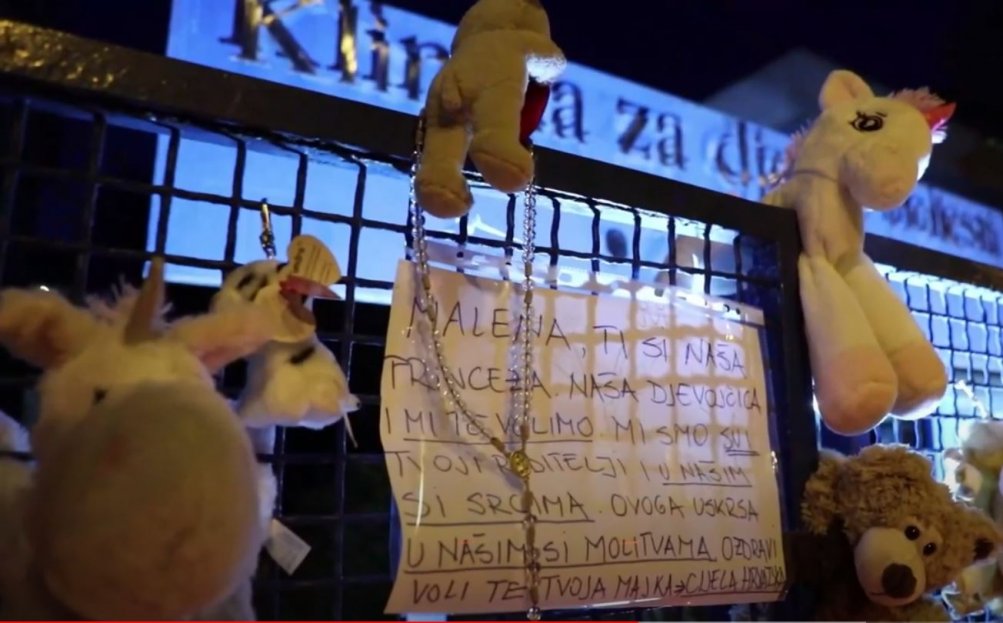 Klinika za dječje
MALENA, TI SI NAŠA
PRINCEZA. NAŠA DJEVOJČICA
I MI TE VOLIMO. MI SMO SVI
TVOJI RODITELJI I U NAŠIM
SI SRCIMA. OVOGA USKRSA
U NAŠIM SI MOLITVAMA. OZDRAVI
VOLI TE TVOJA MAJKA→CIJELA HRVATSKA